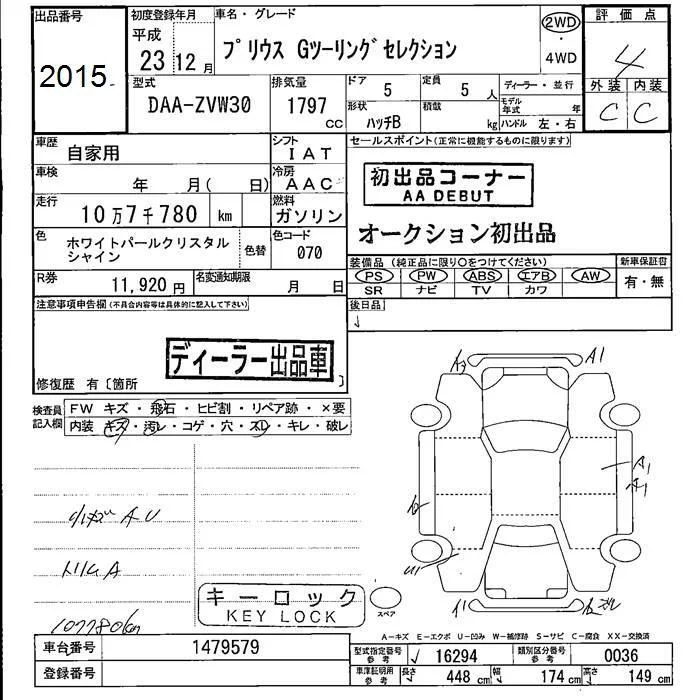 出品番号
2015
初度登録年月
平成
23 12 月
車名・グレード
プリウス Gツーリングセレクション
2WD
・
4WD
評価点
4
外装 内装
C C
型式
DAA-ZVW30
排気量
1797
CC
ドア
5
定員
5 人
形状
ハッチB
積載
kg
ディーラー・並行
モデル年式 年
ハンドル 左・右
車歴
自家用
シフト
IAT
車検
年 月( 日)
冷房
AAC
走行
10万7千780 km
燃料
ガソリン
色
ホワイトパールクリスタル
シャイン
色替
色コード
070
R券
11,920 円
名変通知期限
月 日
セールスポイント(正常に機能するものに限ります)
初出品コーナー
AA DEBUT
オークション初出品
装備品(純正品に限り○をつけてください)
新車保証書
PS PW ABS エアB AW
SR ナビ TV カワ
有・無
後日品
注意事項申告欄(不具合内容等は具体的に記入して下さい)
ディーラー出品車
修復歴 有〔箇所 〕
検査員
記入欄
FW キズ・飛石・ヒビ割・リペア跡・×要
内装 キズ・汚レ・コゲ・穴・スレ・キレ・破レ
A1
A1
A1
AU
A
107780km
キーロック
KEY LOCK
スペア
A-キズ E-エクボ U-凹み W-補修跡 S-サビ C-腐食 XX-交換済
車台番号
1479579
登録番号
型式指定番号
参考
16294
類別区分番号
参考
0036
車庫証明用
参考
長さ 448 cm
幅 174 cm
高さ 149 cm